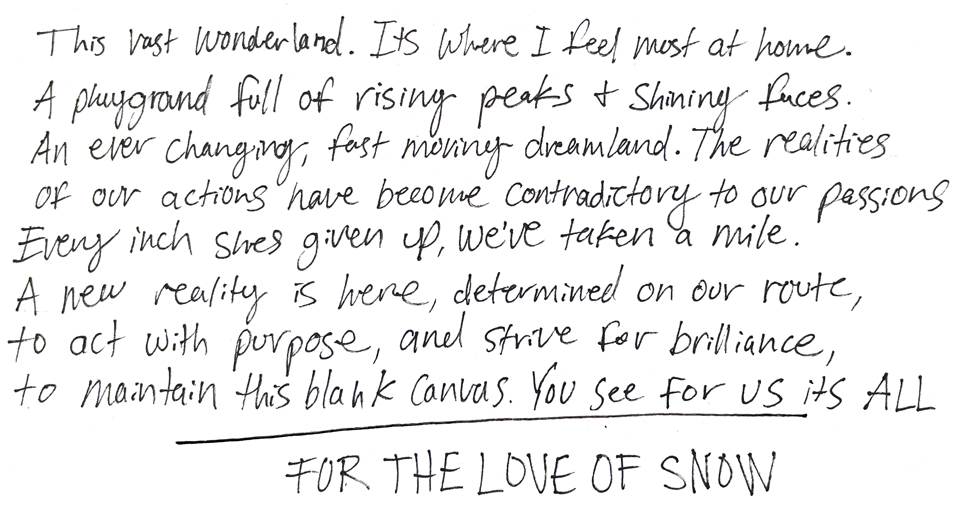 This vast wonderland. Its where I feel most at home.
A playground full of rising peaks + shining faces.
An ever changing, fast moving dreamland. The realities
of our actions have become contradictory to our passions
Every inch shes given up, we've taken a mile.
A new reality is here, determined on our route,
to act with purpose, and strive for brilliance,
to maintain this blank canvas. You see for us its ALL
FOR THE LOVE OF SNOW